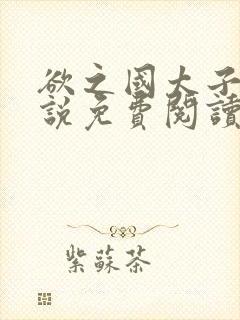 欲之國太子
說免費閱讀
紫蘇茶